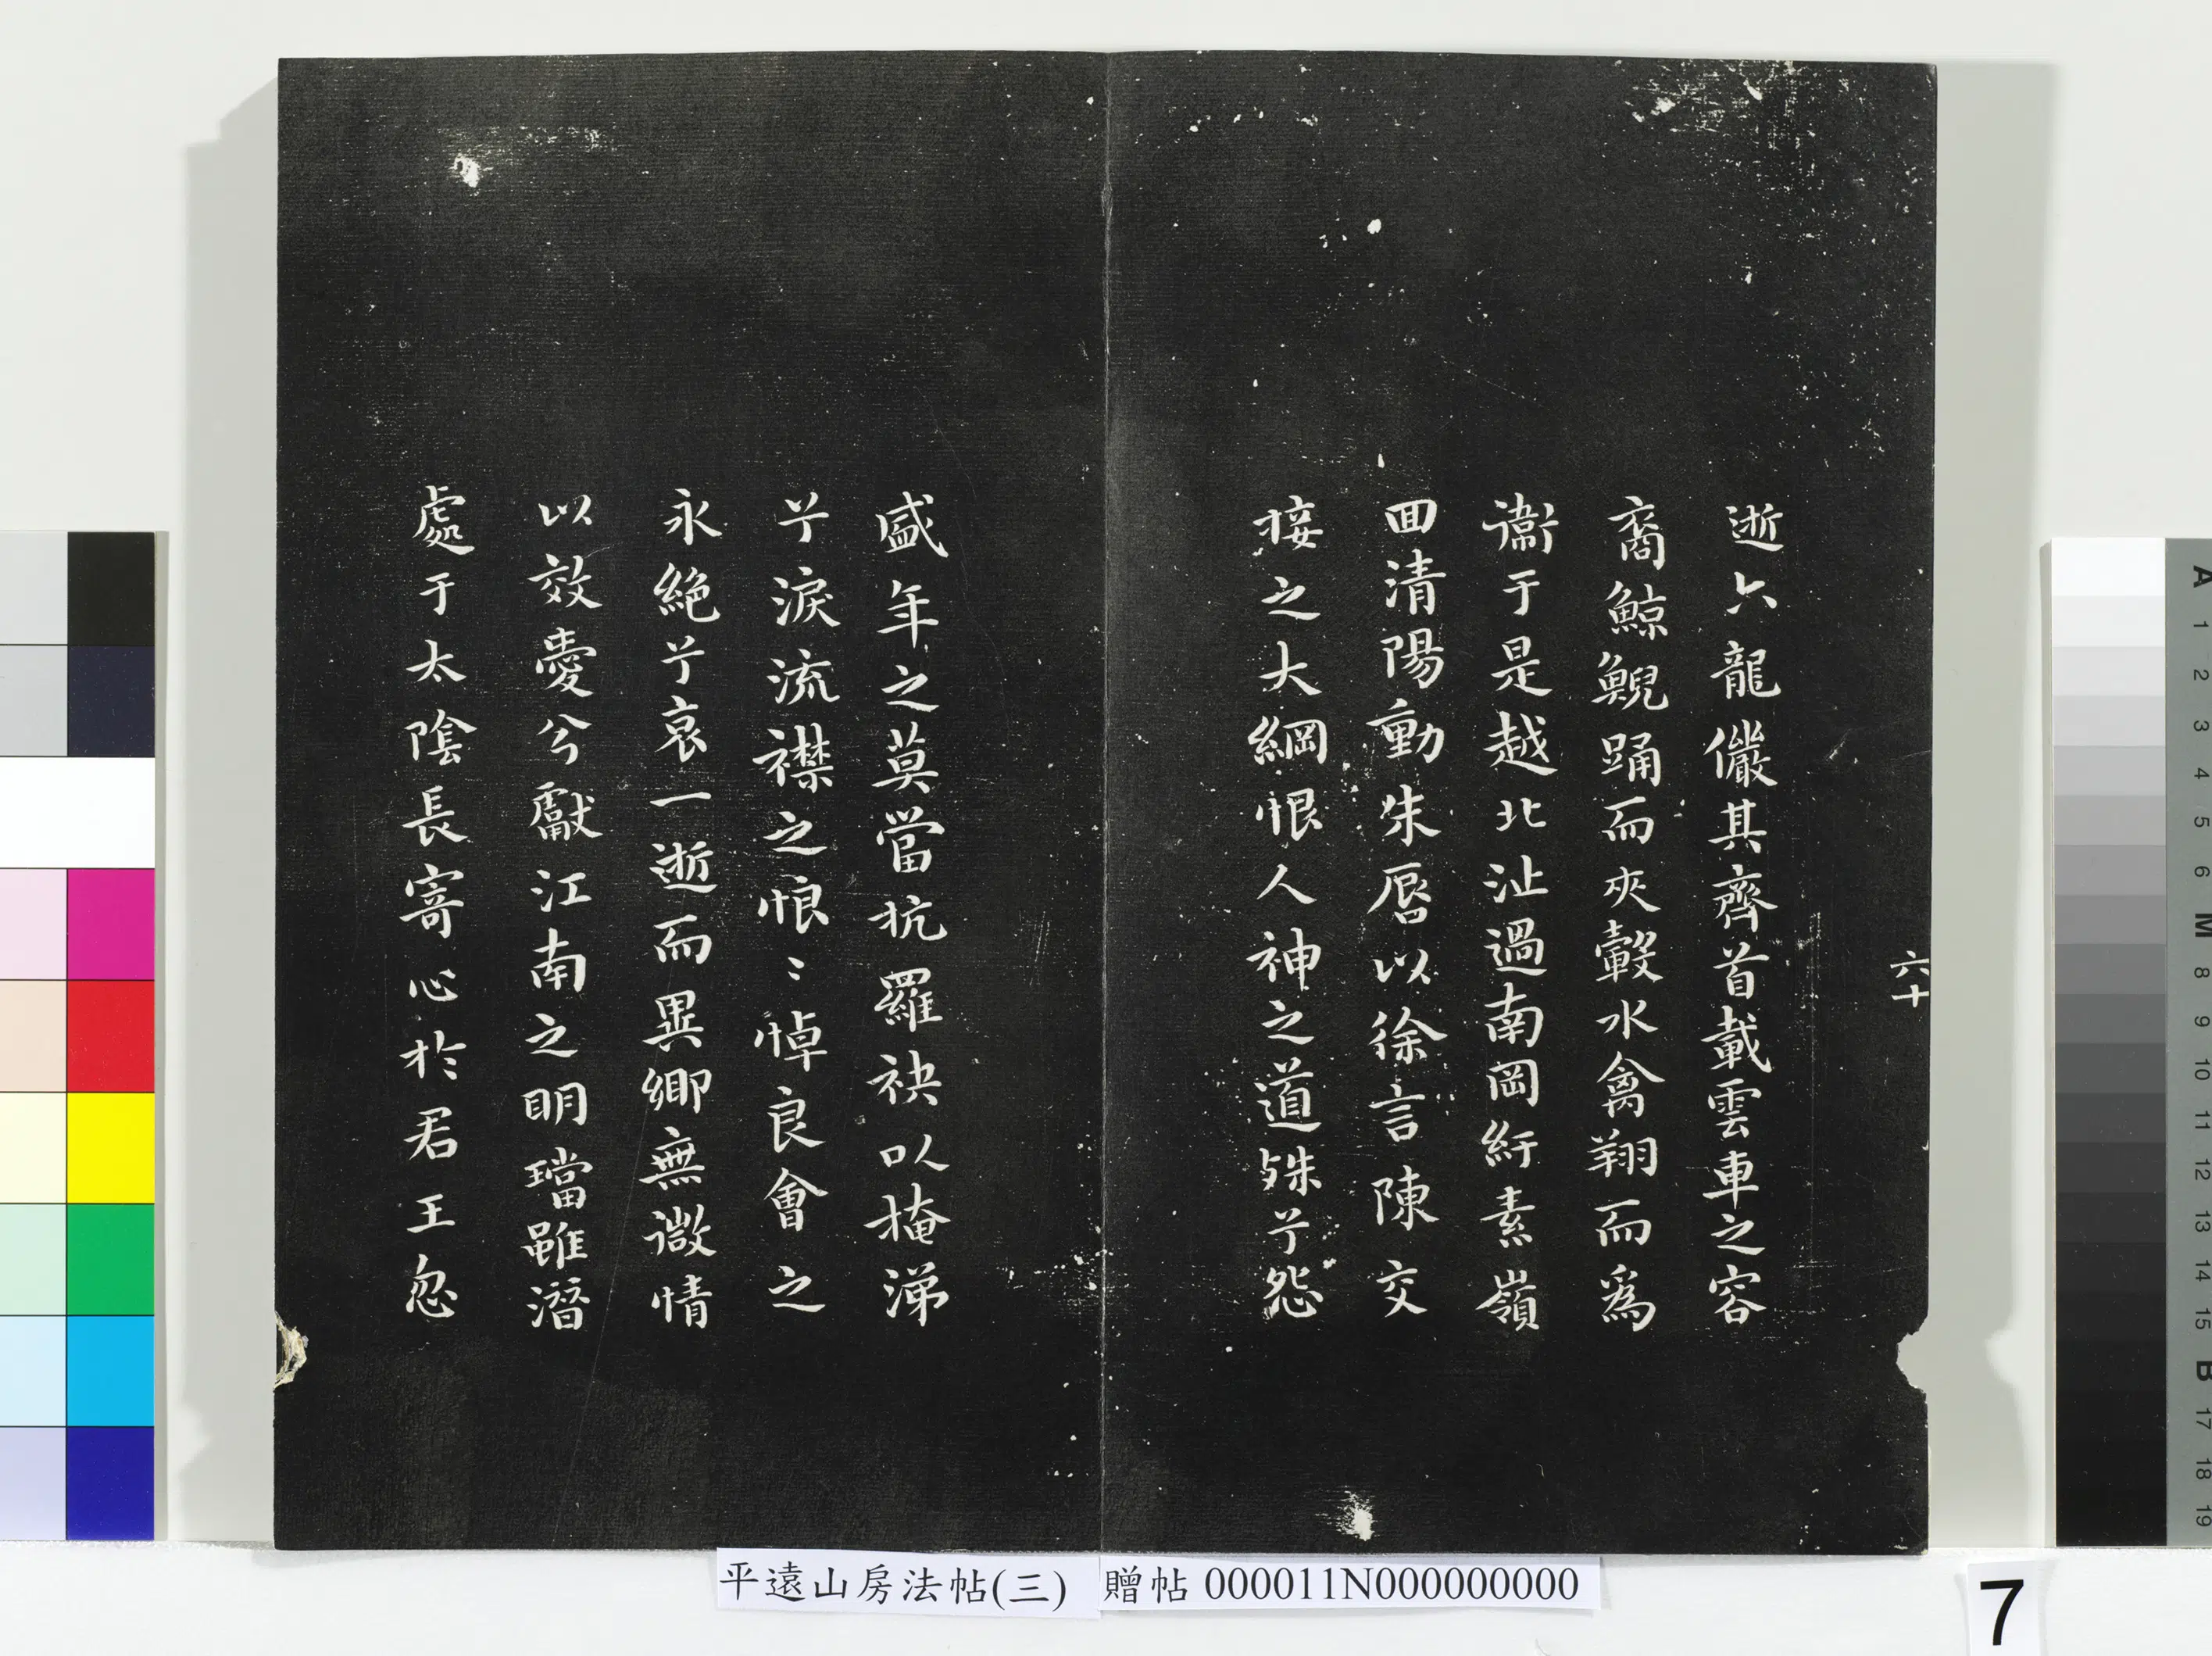 六十
逝六龍儼其齊首載雲車之容
裔鯨鯢踊而夾轂水禽翔而為
衞于是越北沚過南岡紆素嶺
回清陽動朱脣以徐言陳交
接之大綱恨人神之道殊兮怨
盛年之莫當抗羅袂以掩涕
兮淚流襟之恨〻悼良會之
永絕兮哀一逝而異鄉無微情
以效愛兮獻江南之明璫雖潛
處于太陰長寄心於君王忽
平遠山房法帖(三) 贈帖 000011N000000000
7
A 1 2 3 4 5 6 M 8 9 10 11 12 13 14 15 B 17 18 19